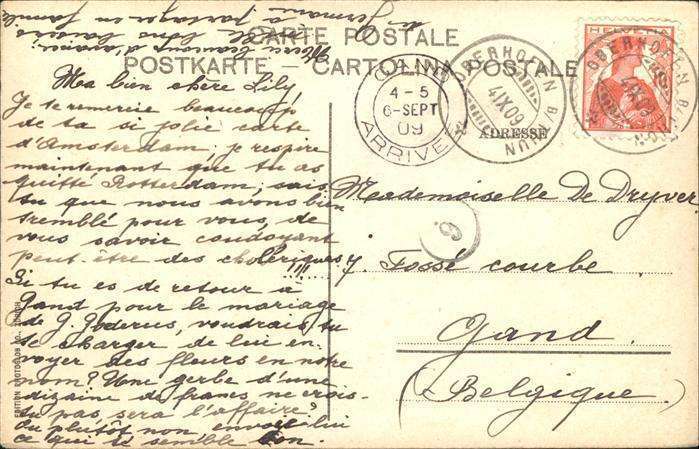 CARTE POSTALE
POSTKARTE — CARTOLINA POSTALE
ADRESSE
HELVETIA
OBERHOFEN B/THUN
4 IX 09
OBERHOFEN B/THUN
4 IX 09
GAND
4-5
6-SEPT
09
ARRIVEE
6
Ma bien chère Lily!
Je te remercie beaucoup
de ta si jolie carte
d'Amsterdam; je respire
maintenant que tu as
quitté Rotterdam, sais-
tu que nous avons bien
tremblé pour vous, de
vous savoir coudoyant
peut-être des cholériques!!!!
Si tu es de retour à
Gand pour le mariage
de G. Goderus, voudrais-tu
te charger de lui en-
voyer des fleurs en notre
nom? Une gerbe d'une
dizaine de francs ne crois-
tu pas sera l'affaire?
Ou plutôt non envoie lui
ce qui te semble bon.
Merci beaucoup d'avance
mille bons baisers
de Germaine à partager en famille
Mademoiselle De Dryver
7. Fossé courbe
Gand.
(Belgique)